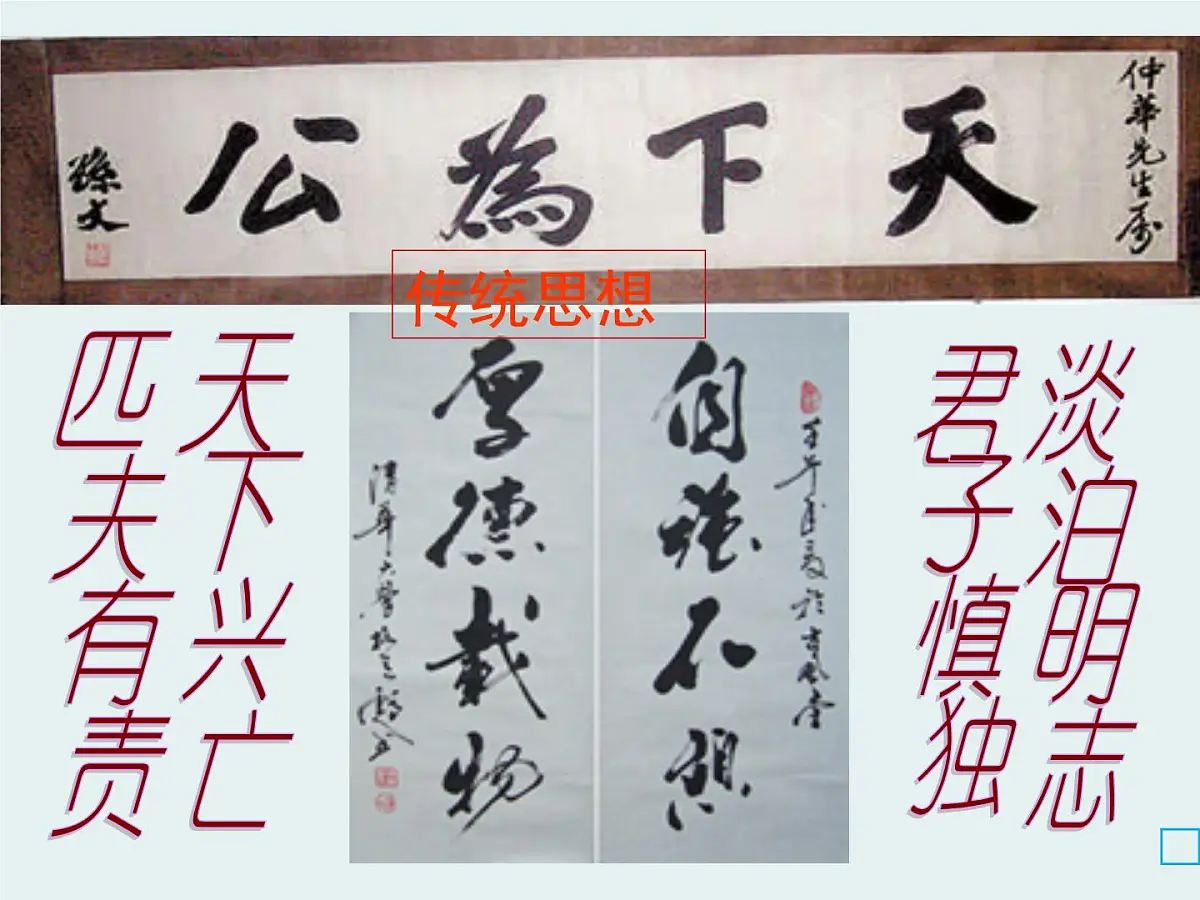 仲華先生属
天下為公
孫文
传统思想
淡泊明志
君子慎独
自强不息
厚德載物
清華大學校
天下兴亡
匹夫有责